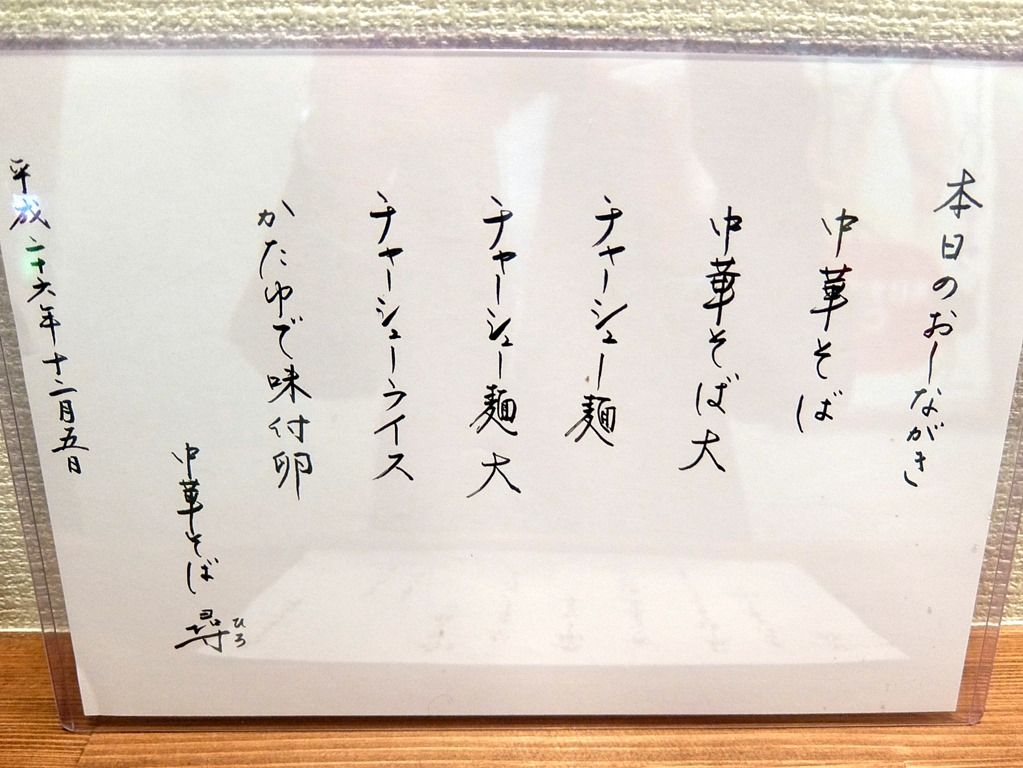 本日のおーながき
中華そば
中華そば大
チャーシュー麺
チャーシュー麺大
チャーシューライス
かたゆで味付卵
中華そば 尋
ひろ
平成二十六年十二月五日